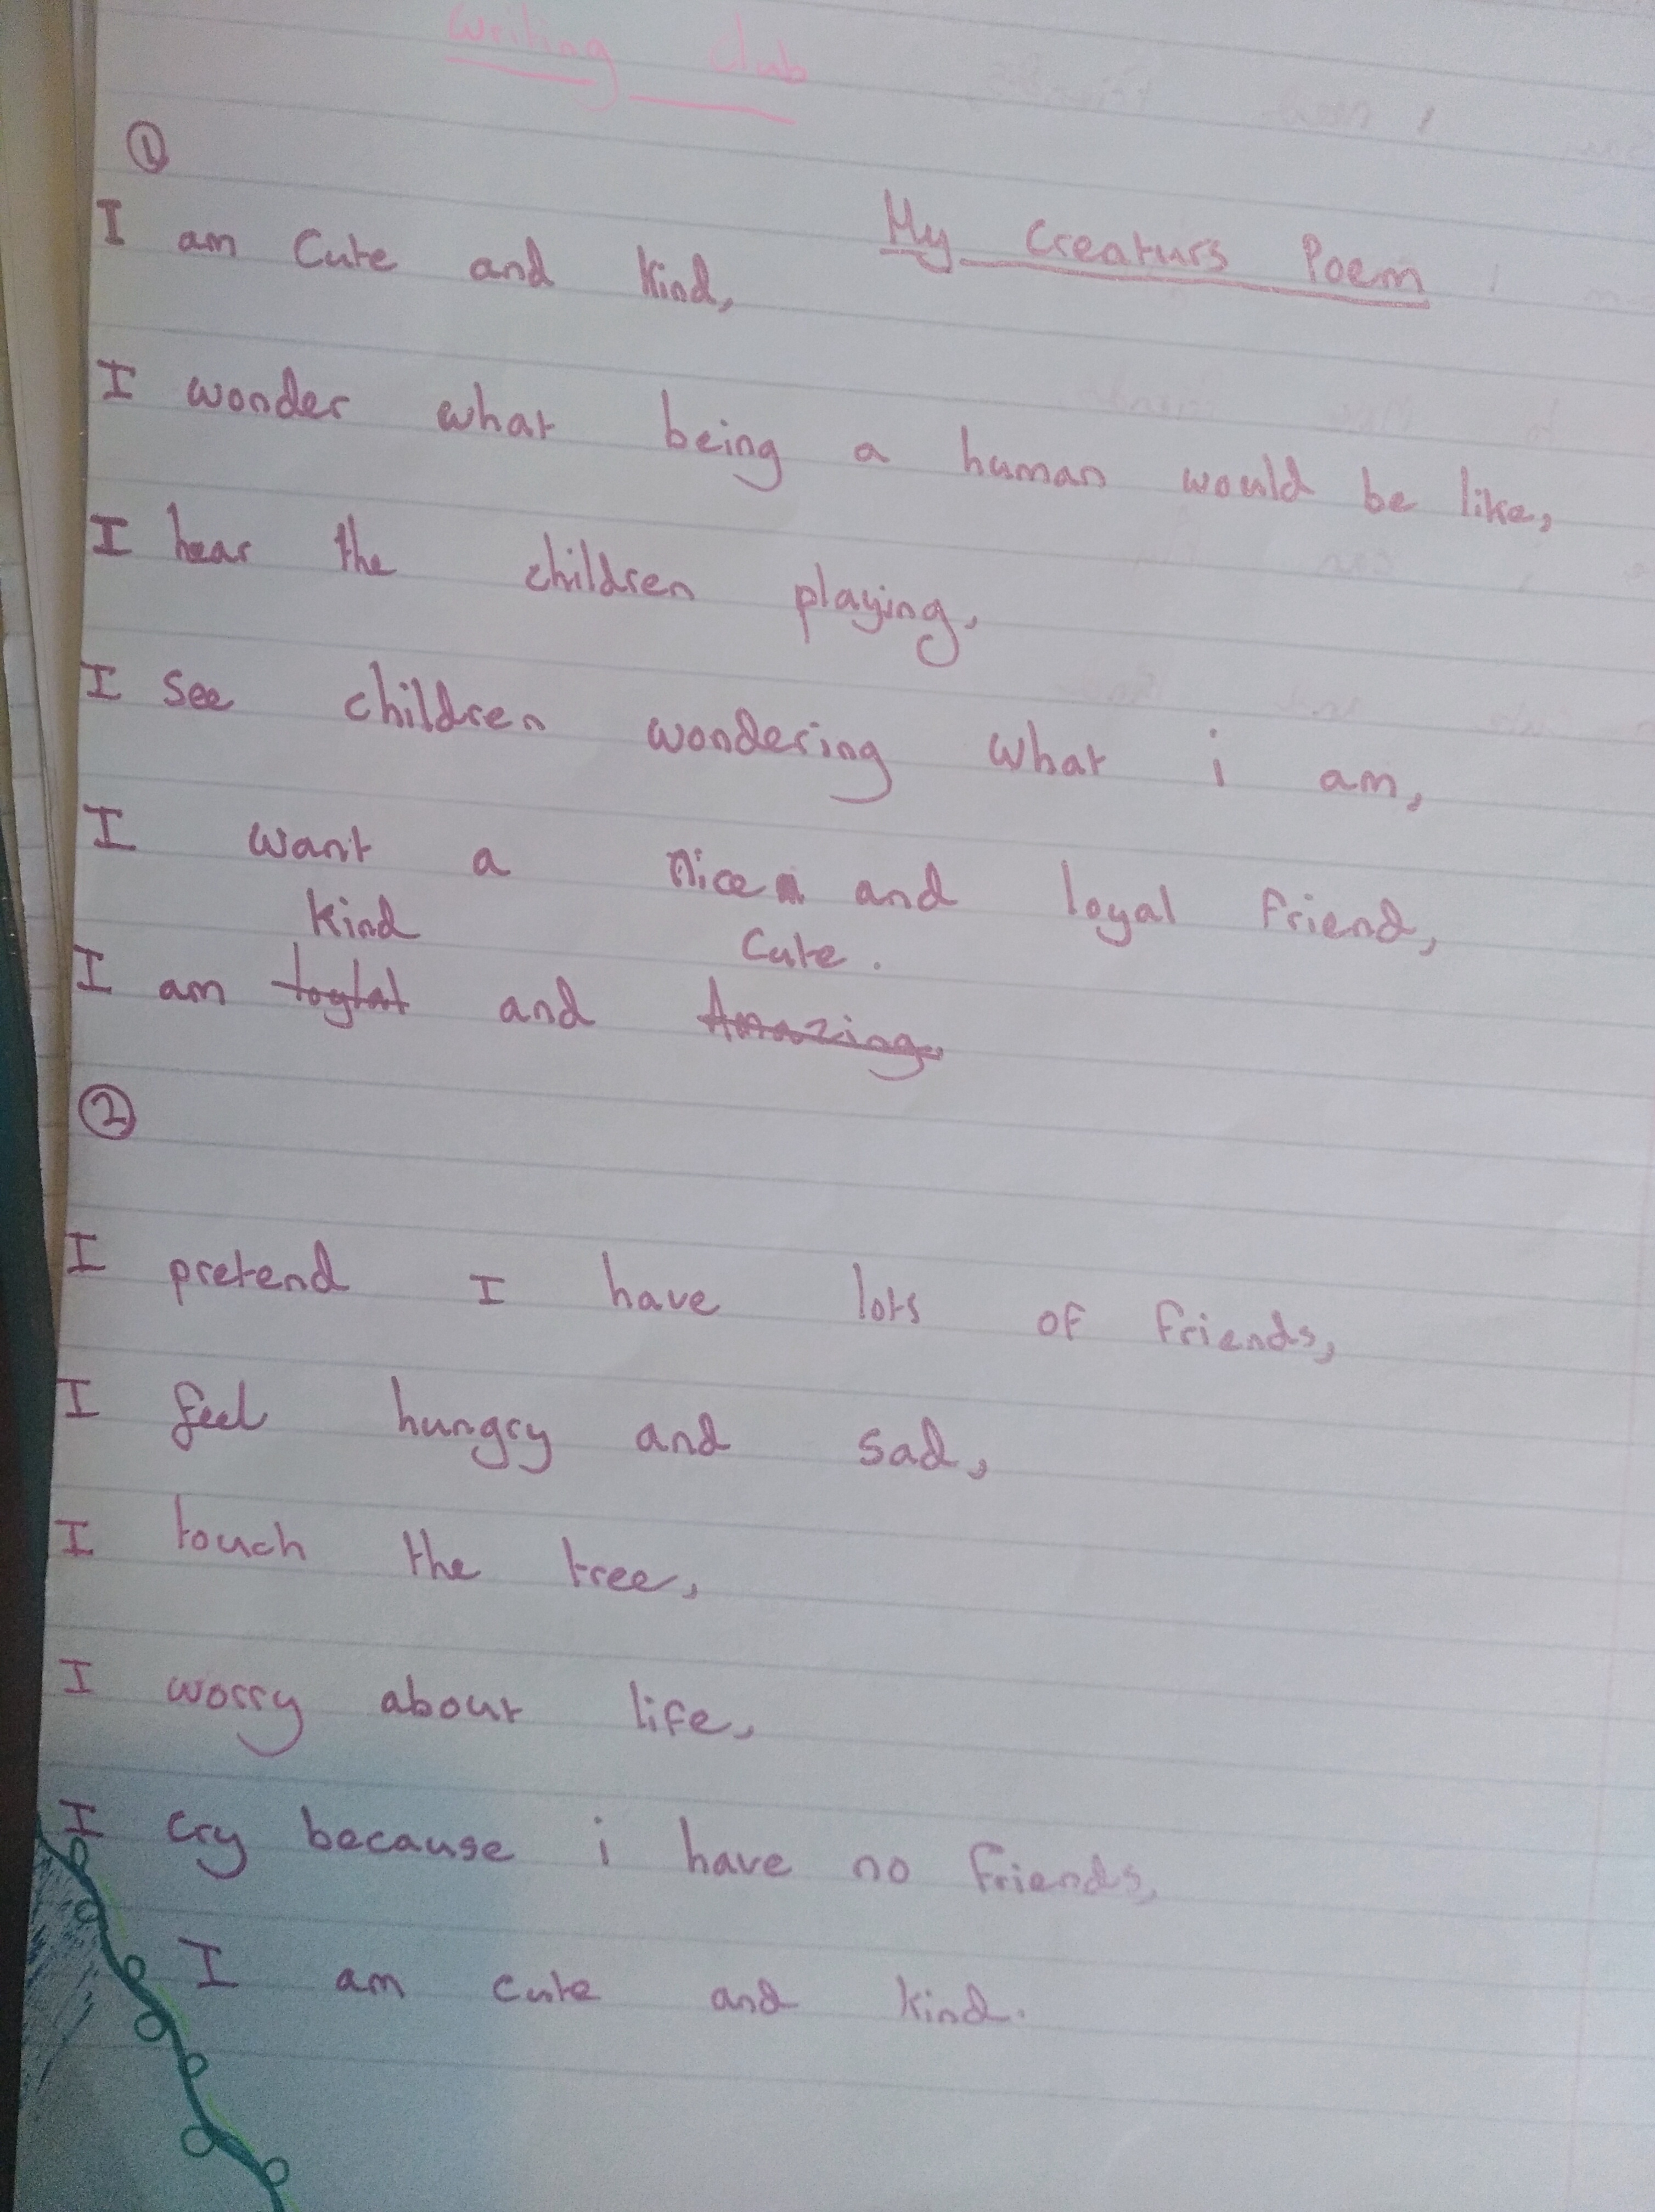 Writing Club
①
My Creaturs Poem
I am Cute and Kind,
I wonder what being a human would be like,
I hear the children playing,
I see children wondering what i am,
I want a nice and loyal friend,
Kind Cute.
I am and Amazing
②
I pretend I have lots of friends,
I feel hungry and sad,
I touch the tree,
I worry about life,
I cry because i have no friends,
I am cute and kind.